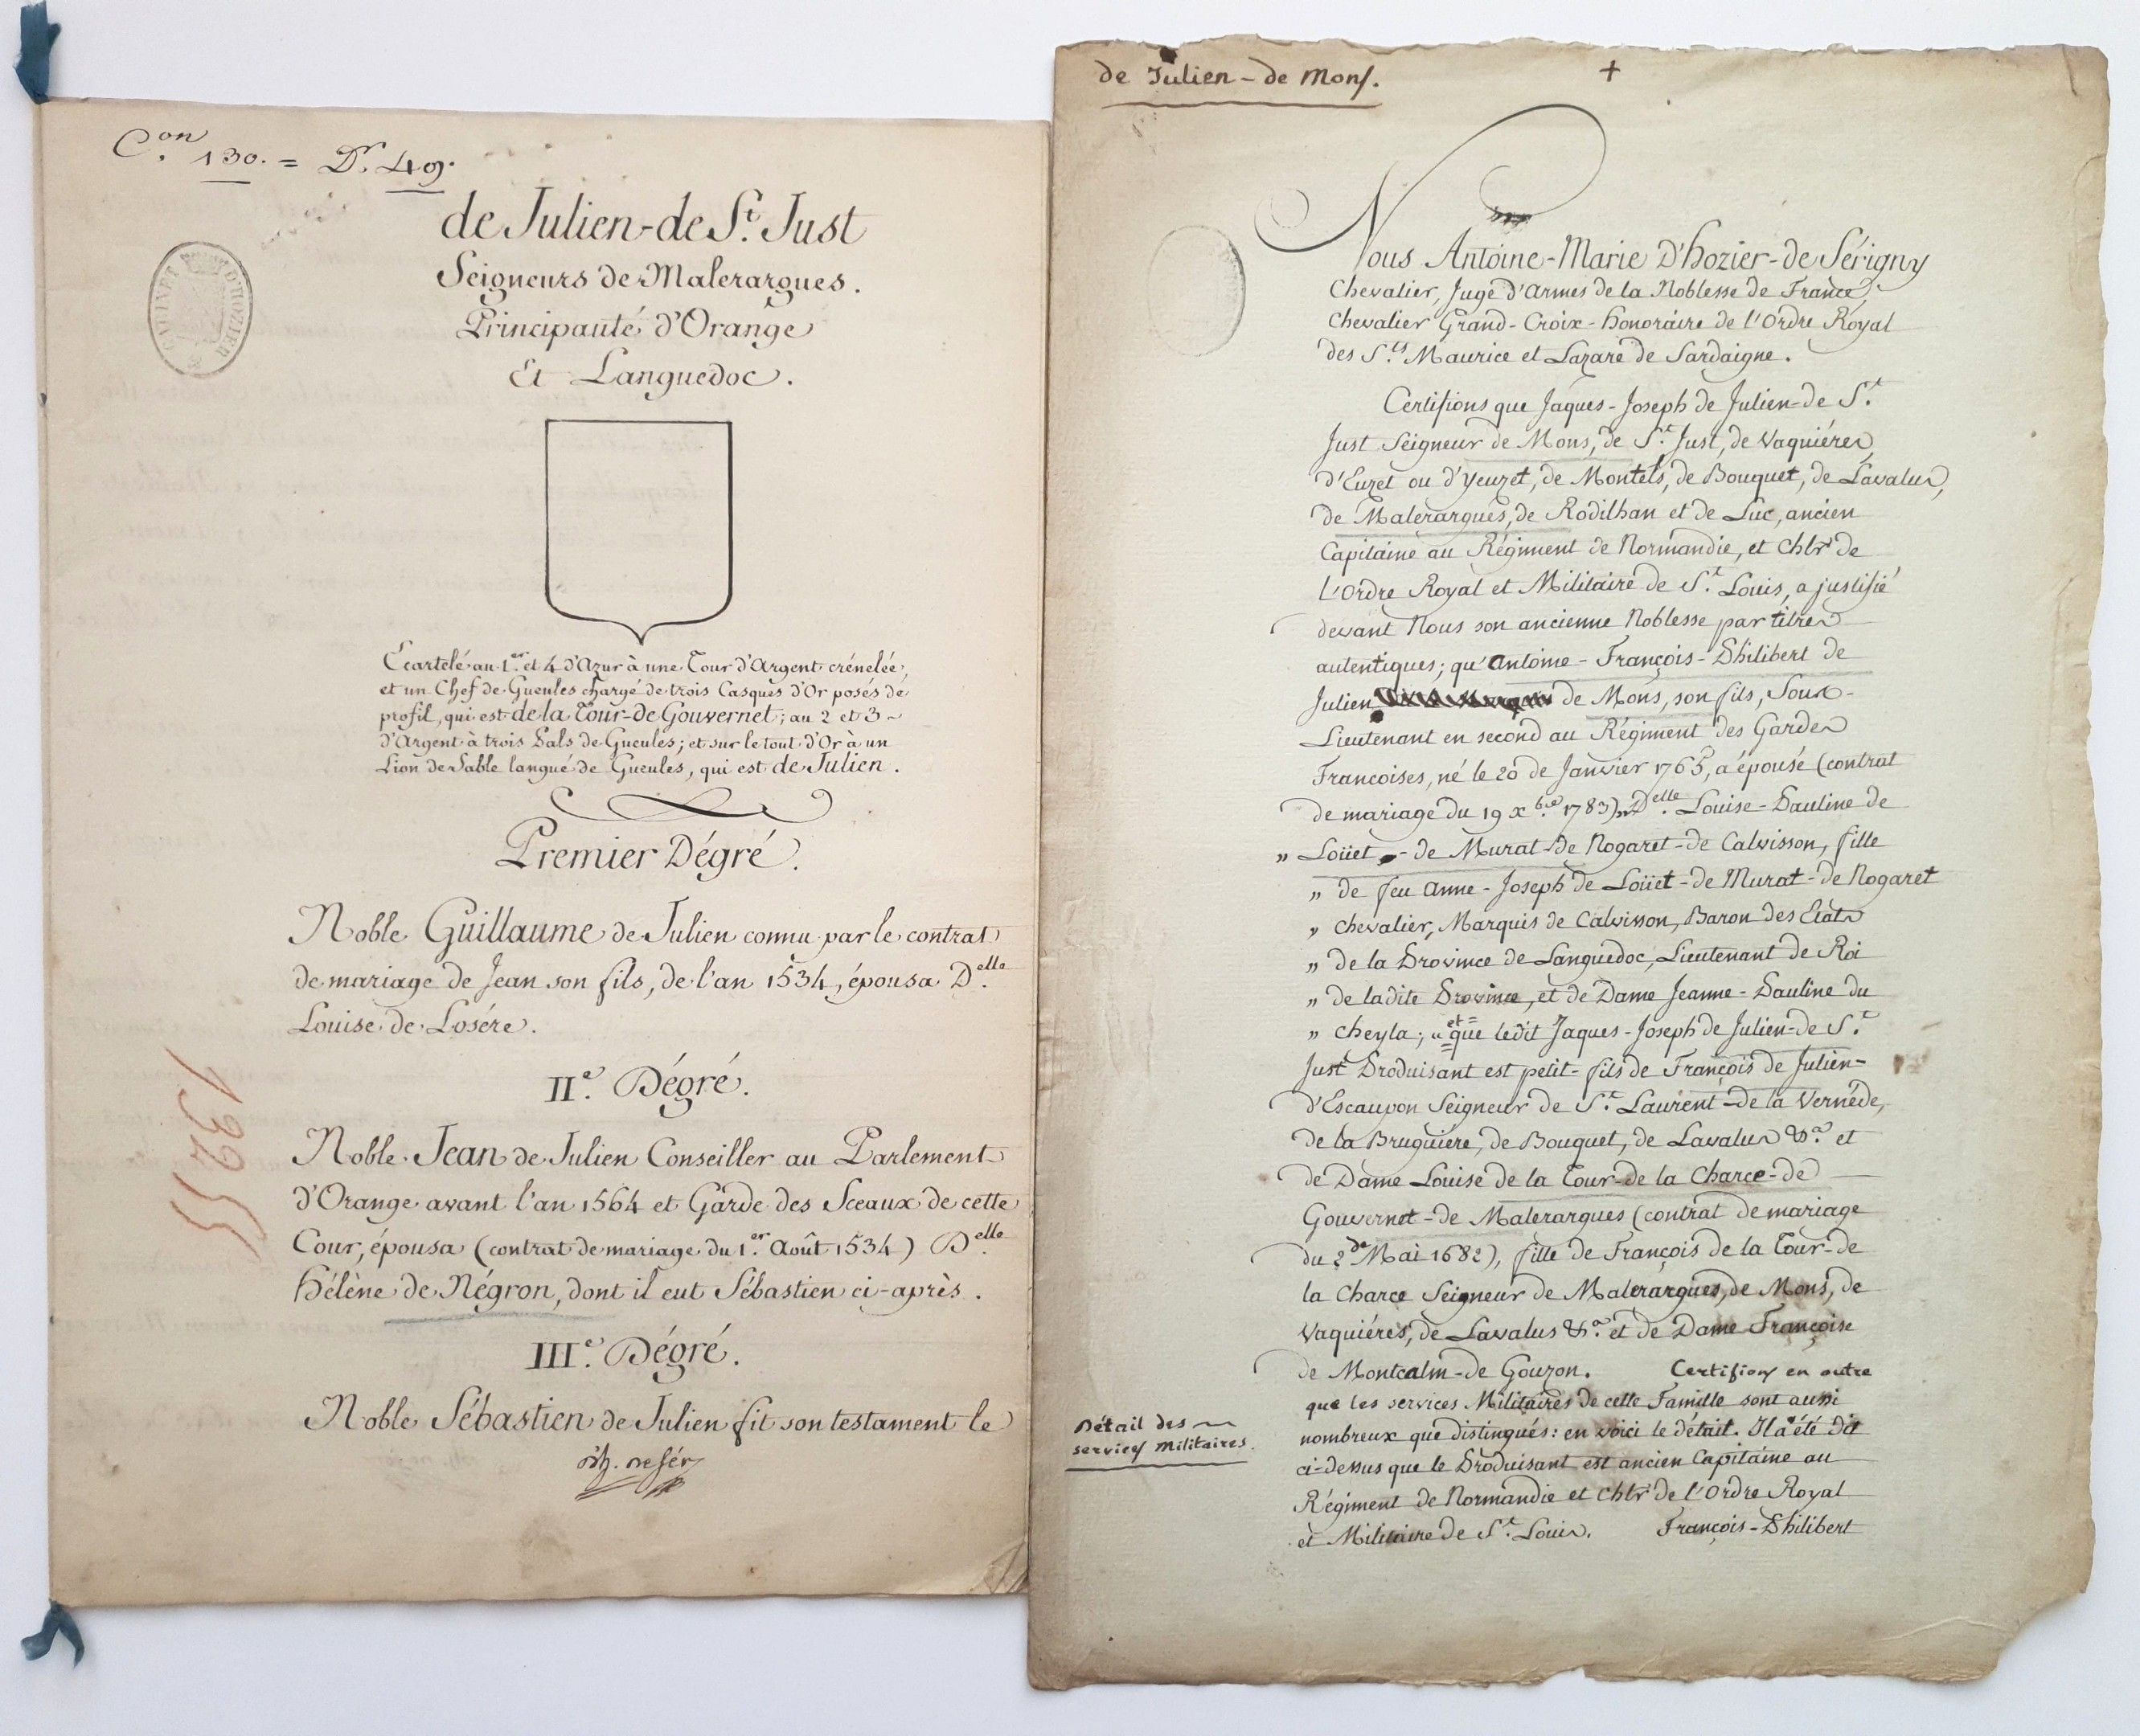 C.on 130. = Dr. 49.
CABINET D'HOZIER
de Julien-de St. Just
Seigneurs de Malerargues.
Principauté d'Orange
Et Languedoc.
Ecartelé au 1.er et 4 d'Azur à une Tour d'Argent crénelée,
et un Chef de Gueules chargé de trois Casques d'Or posés de
profil, qui est de la Tour-de Gouvernet; au 2 et 3 ~
d'Argent à trois Pals de Gueules; et sur le tout d'Or à un
Lion de Sable langué de Gueules, qui est de Julien.
Premier Dégré.
Noble Guillaume de Julien connu par le contrat
de mariage de Jean son fils, de l'an 1534, épousa D.elle
Louise de Losére.
II.e Dégré.
Noble Jean de Julien Conseiller au Parlement
d'Orange avant l'an 1564 et Garde des Sceaux de cette
Cour, épousa (contrat de mariage du 1.er Août 1534) D.elle
Hélène de Négron, dont il eut Sébastien ci-après.
III.e Dégré.
Noble Sébastien de Julien fit son testament le
1325
de Julien-de Mons.
+
Nous Antoine-Marie D'hozier-de Sérigny
Chevalier, Juge d'Armes de la Noblesse de France,
Chevalier Grand-Croix-honoraire de l'Ordre Royal
des S.ts Maurice et Lazare de Sardaigne.
Certifions que Jaques-Joseph de Julien-de S.t
Just Seigneur de Mons, de S.t Just, de Vaquiéres,
d'Euzet ou d'Yeuzet, de Montels, de Bouquet, de Lavalus,
de Malerargues, de Rodilhan et de Luc, ancien
Capitaine au Régiment de Normandie, et Chlr de
l'Ordre Royal et Militaire de S.t Louis, a justifié
devant Nous son ancienne Noblesse par titres
autentiques; qu'Antoine-François-Philibert de
Julien de Mons, son fils, Sous-
Lieutenant en second au Régiment des Gardes
Françoises, né le 20 de Janvier 1765, a épousé (contrat
de mariage du 19 xb.re 1783) „ D.elle Louise-Pauline de
„ Loüet - de Murat-de Nogaret-de Calvisson, fille
„ de feu Anne-Joseph de Loüet-de Murat-de Nogaret
„ Chevalier, Marquis de Calvisson, Baron des Etats
„ de la Province de Languedoc, Lieutenant de Roi
„ de ladite Province, et de Dame Jeanne-Pauline du
„ Cheyla; „ et que ledit Jaques-Joseph de Julien-de S.t
Just Produisant est petit-fils de François de Julien-
d'Escaupon Seigneur de S.t Laurent-de la Vernéde,
de la Bruguiére, de Bouquet, de Lavalus &.a et
de Dame Louise de la Tour-de la Charce-de
Gouvernet-de Malerargues (contrat de mariage
du 2.de Mai 1682), fille de François de la Tour-de
la Charce Seigneur de Malerargues, de Mons, de
Vaquiéres, de Lavalus &.a et de Dame Françoise
de Montcalm-de Gouzon. Certifions en outre
que les services Militaires de cette Famille sont aussi
Détail des
services Militaires.
nombreux que distingués: en voici le détail. Il a été dit
ci-dessus que le Produisant est ancien Capitaine au
Régiment de Normandie et Chlr de l'Ordre Royal
et Militaire de S.t Louis. François-Philibert